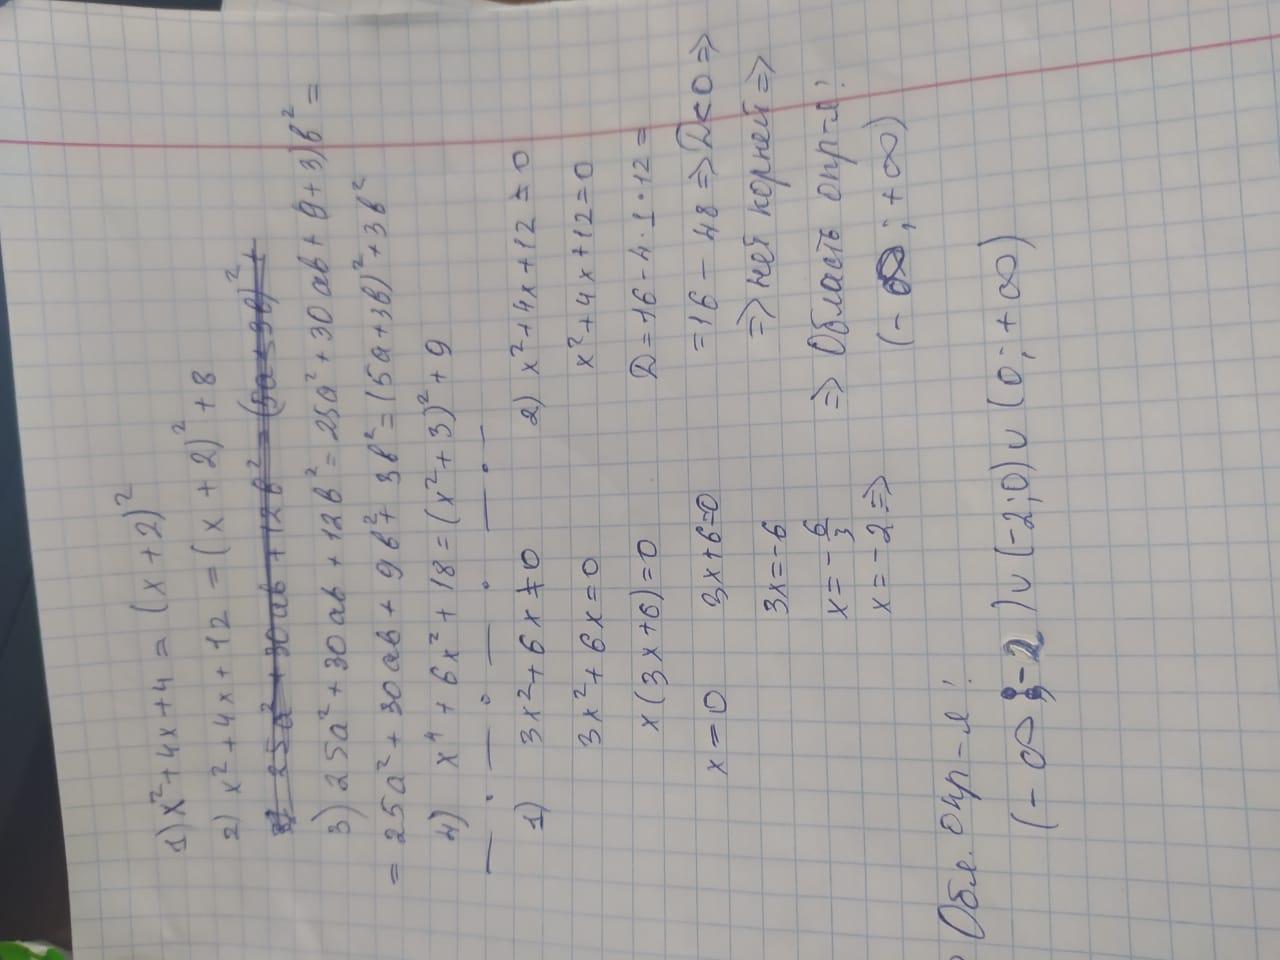 1) x²+4x+4 = (x+2)²
2) x²+4x+12 = (x+2)²+8
25a²+30ab+12b² = (5a+3b)²+
3) 25a²+30ab+12b² = 25a²+30ab+9+3)b² =
= 25a²+30ab+9b²+3b² = (5a+3b)²+3b²
4) x⁴+6x²+18 = (x²+3)²+9
1) 3x²+6x≠0
3x²+6x=0
x(3x+6)=0
x=0 3x+6=0
3x=-6
x=-6/3
x=-2 =>
2) x²+4x+12≠0
x²+4x+12=0
D=16-4·1·12=
=16-48=>D<0=>
=> нет корней =>
=> Область опр-я:
(-∞;+∞)
Обл. опр-я:
(-∞;-2)∪(-2;0)∪(0;+∞)